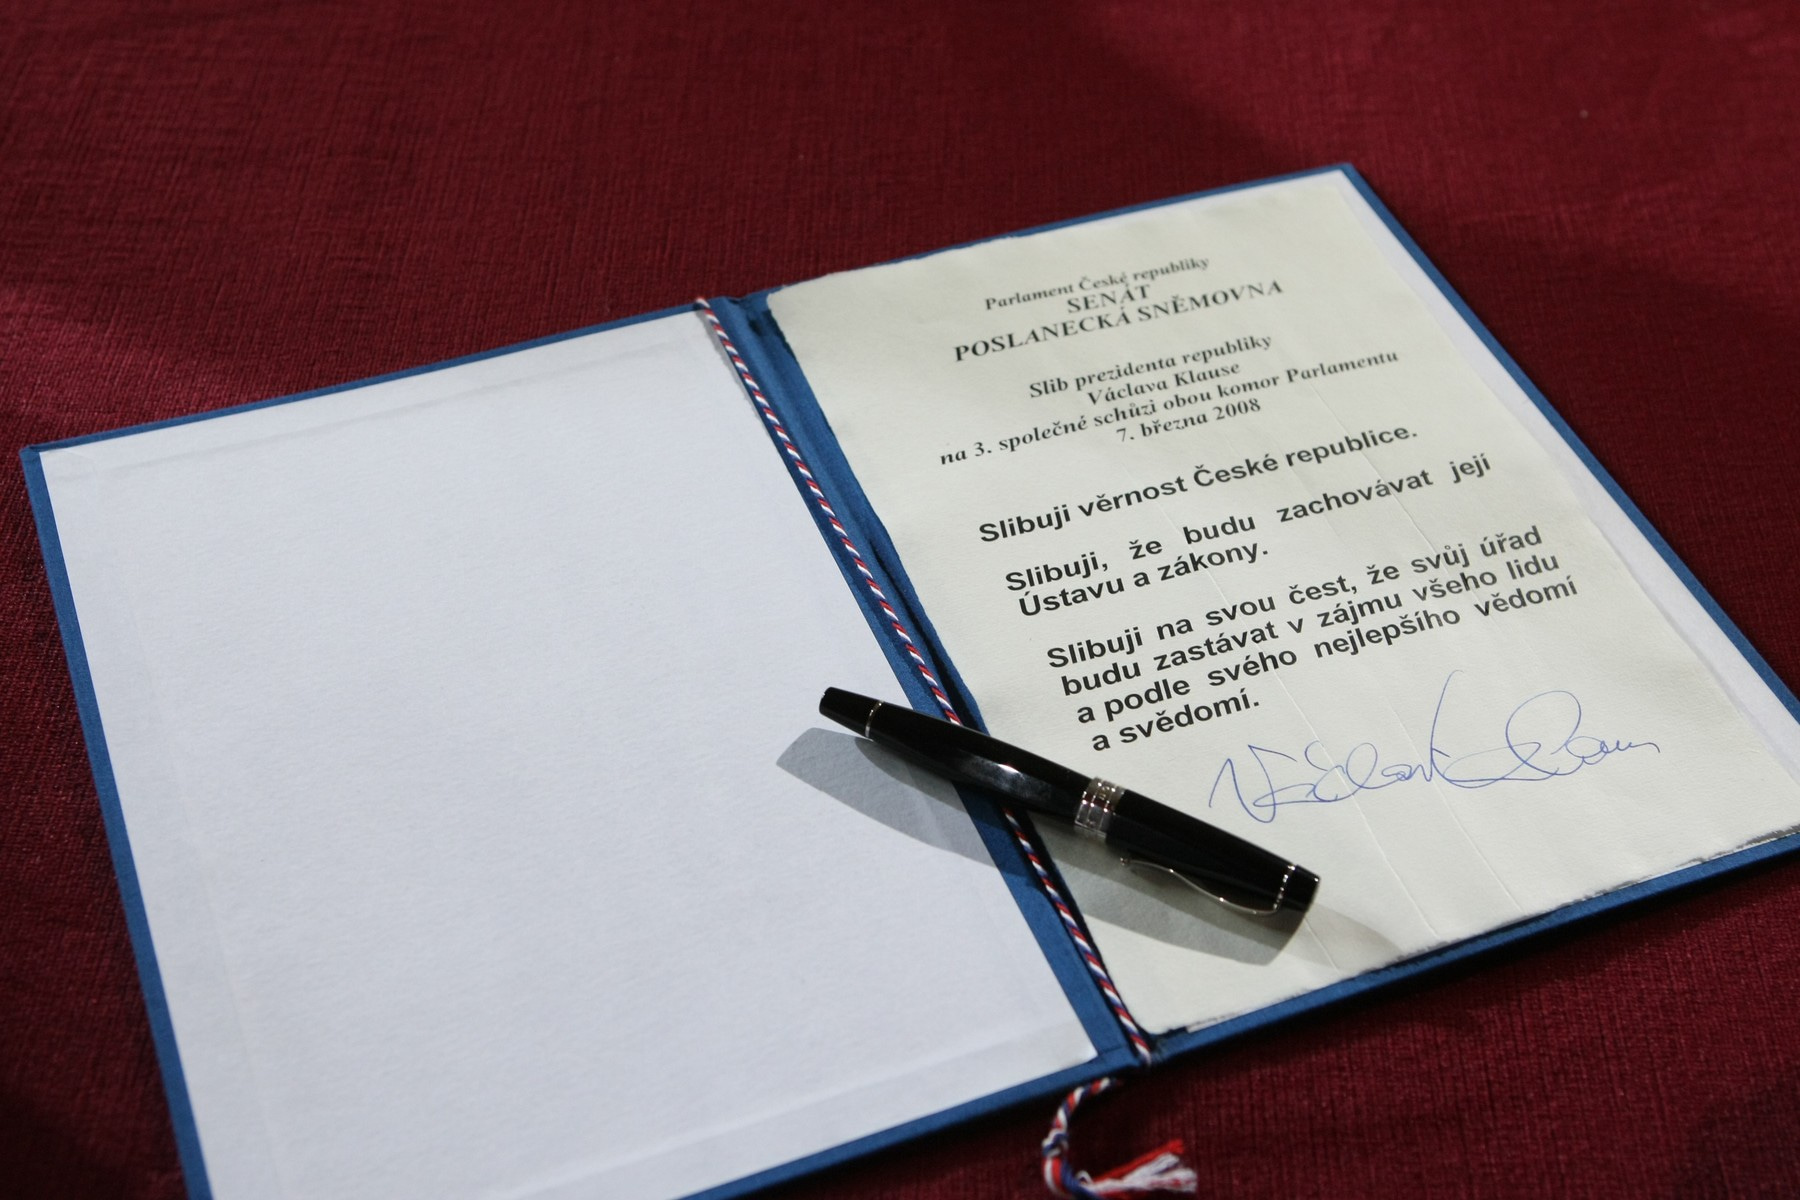 Parlament České republiky
SENÁT
POSLANECKÁ SNĚMOVNA
Slib prezidenta republiky
Václava Klause
na 3. společné schůzi obou komor Parlamentu
7. března 2008
Slibuji věrnost České republice.
Slibuji, že budu zachovávat její
Ústavu a zákony.
Slibuji na svou čest, že svůj úřad
budu zastávat v zájmu všeho lidu
a podle svého nejlepšího vědomí
a svědomí.
Václav Klaus